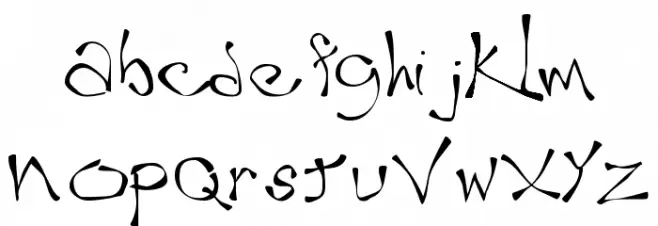 abcdefghijklm
nopQrstuVwXYZ